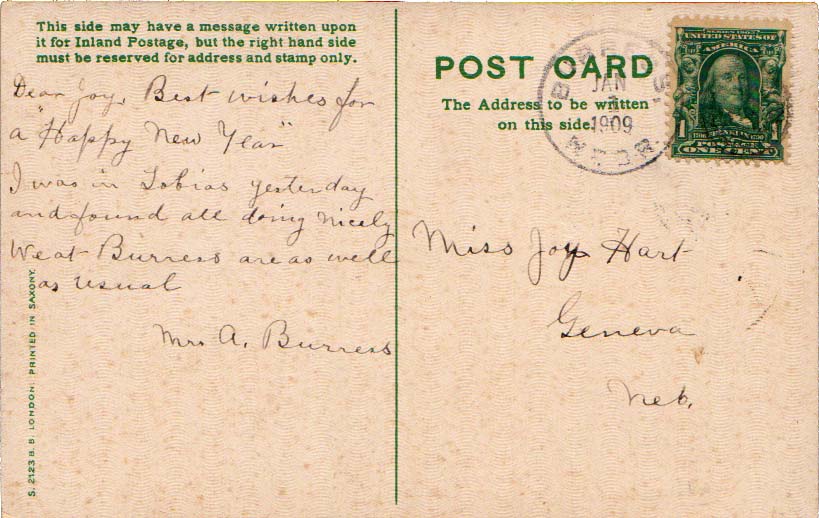 This side may have a message written upon
it for Inland Postage, but the right hand side
must be reserved for address and stamp only.
Dear Joy, Best wishes for
a "Happy New Year"
I was in Tobias yesterday
and found all doing nicely
We at Burress are as well
as usual
Mrs A. Burress
S. 2123 B. B. LONDON. PRINTED IN SAXONY.
POST CARD
The Address to be written
on this side.
JAN
1909
UNITED STATES OF
AMERICA
1 FRANKLIN 1
POSTAGE
ONE CENT
Miss Joy Hart
Geneva
Neb.